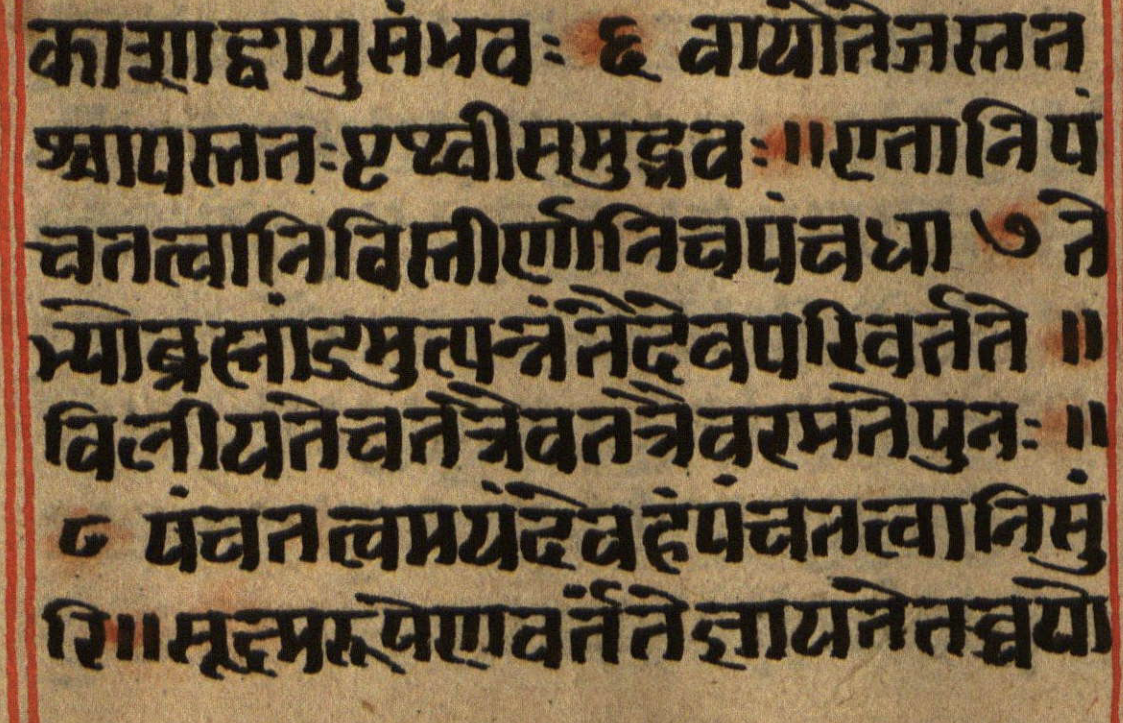 काशाद्वायुसंभवः ६ वायोस्तेजस्तत
श्चापस्ततःपृथ्वीसमुद्भवः॥एतानिपं
चतत्वानिविस्तीर्णानिचपंचधा ७ ते
भ्योब्रह्मांडमुत्पन्नंतैदेवपरिवर्तते ॥
विलीयतेचतत्रैवतत्रैवरमतेपुनः ॥
८ पंचतत्वमयंदेवहंपंचतत्त्वानिसुं
रि॥सूक्ष्मरूपेणवर्तंतेज्ञायतेतच्चयो